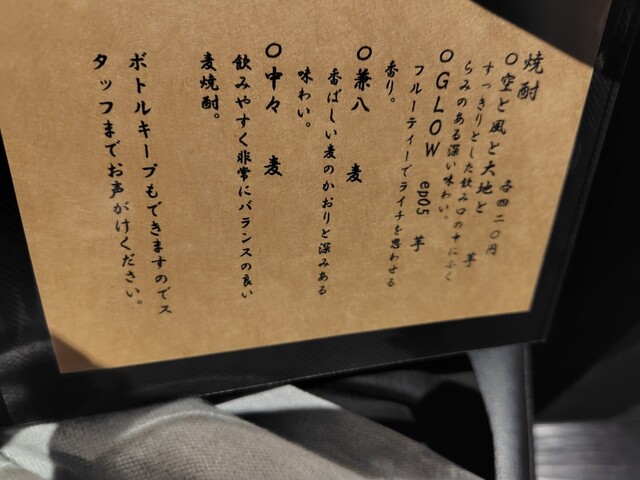 焼酎
各四二〇円
〇空と風と大地と 芋
すっきりとした飲み口の中にふく
らみのある深い味わい。
〇GLOW ep05 芋
フルーティーでライチを思わせる
香り。
〇兼八 麦
香ばしい麦のかおりと深みある
味わい。
〇中々 麦
飲みやすく非常にバランスの良い
麦焼酎。
ボトルキープもできますのでス
タッフまでお声がけください。